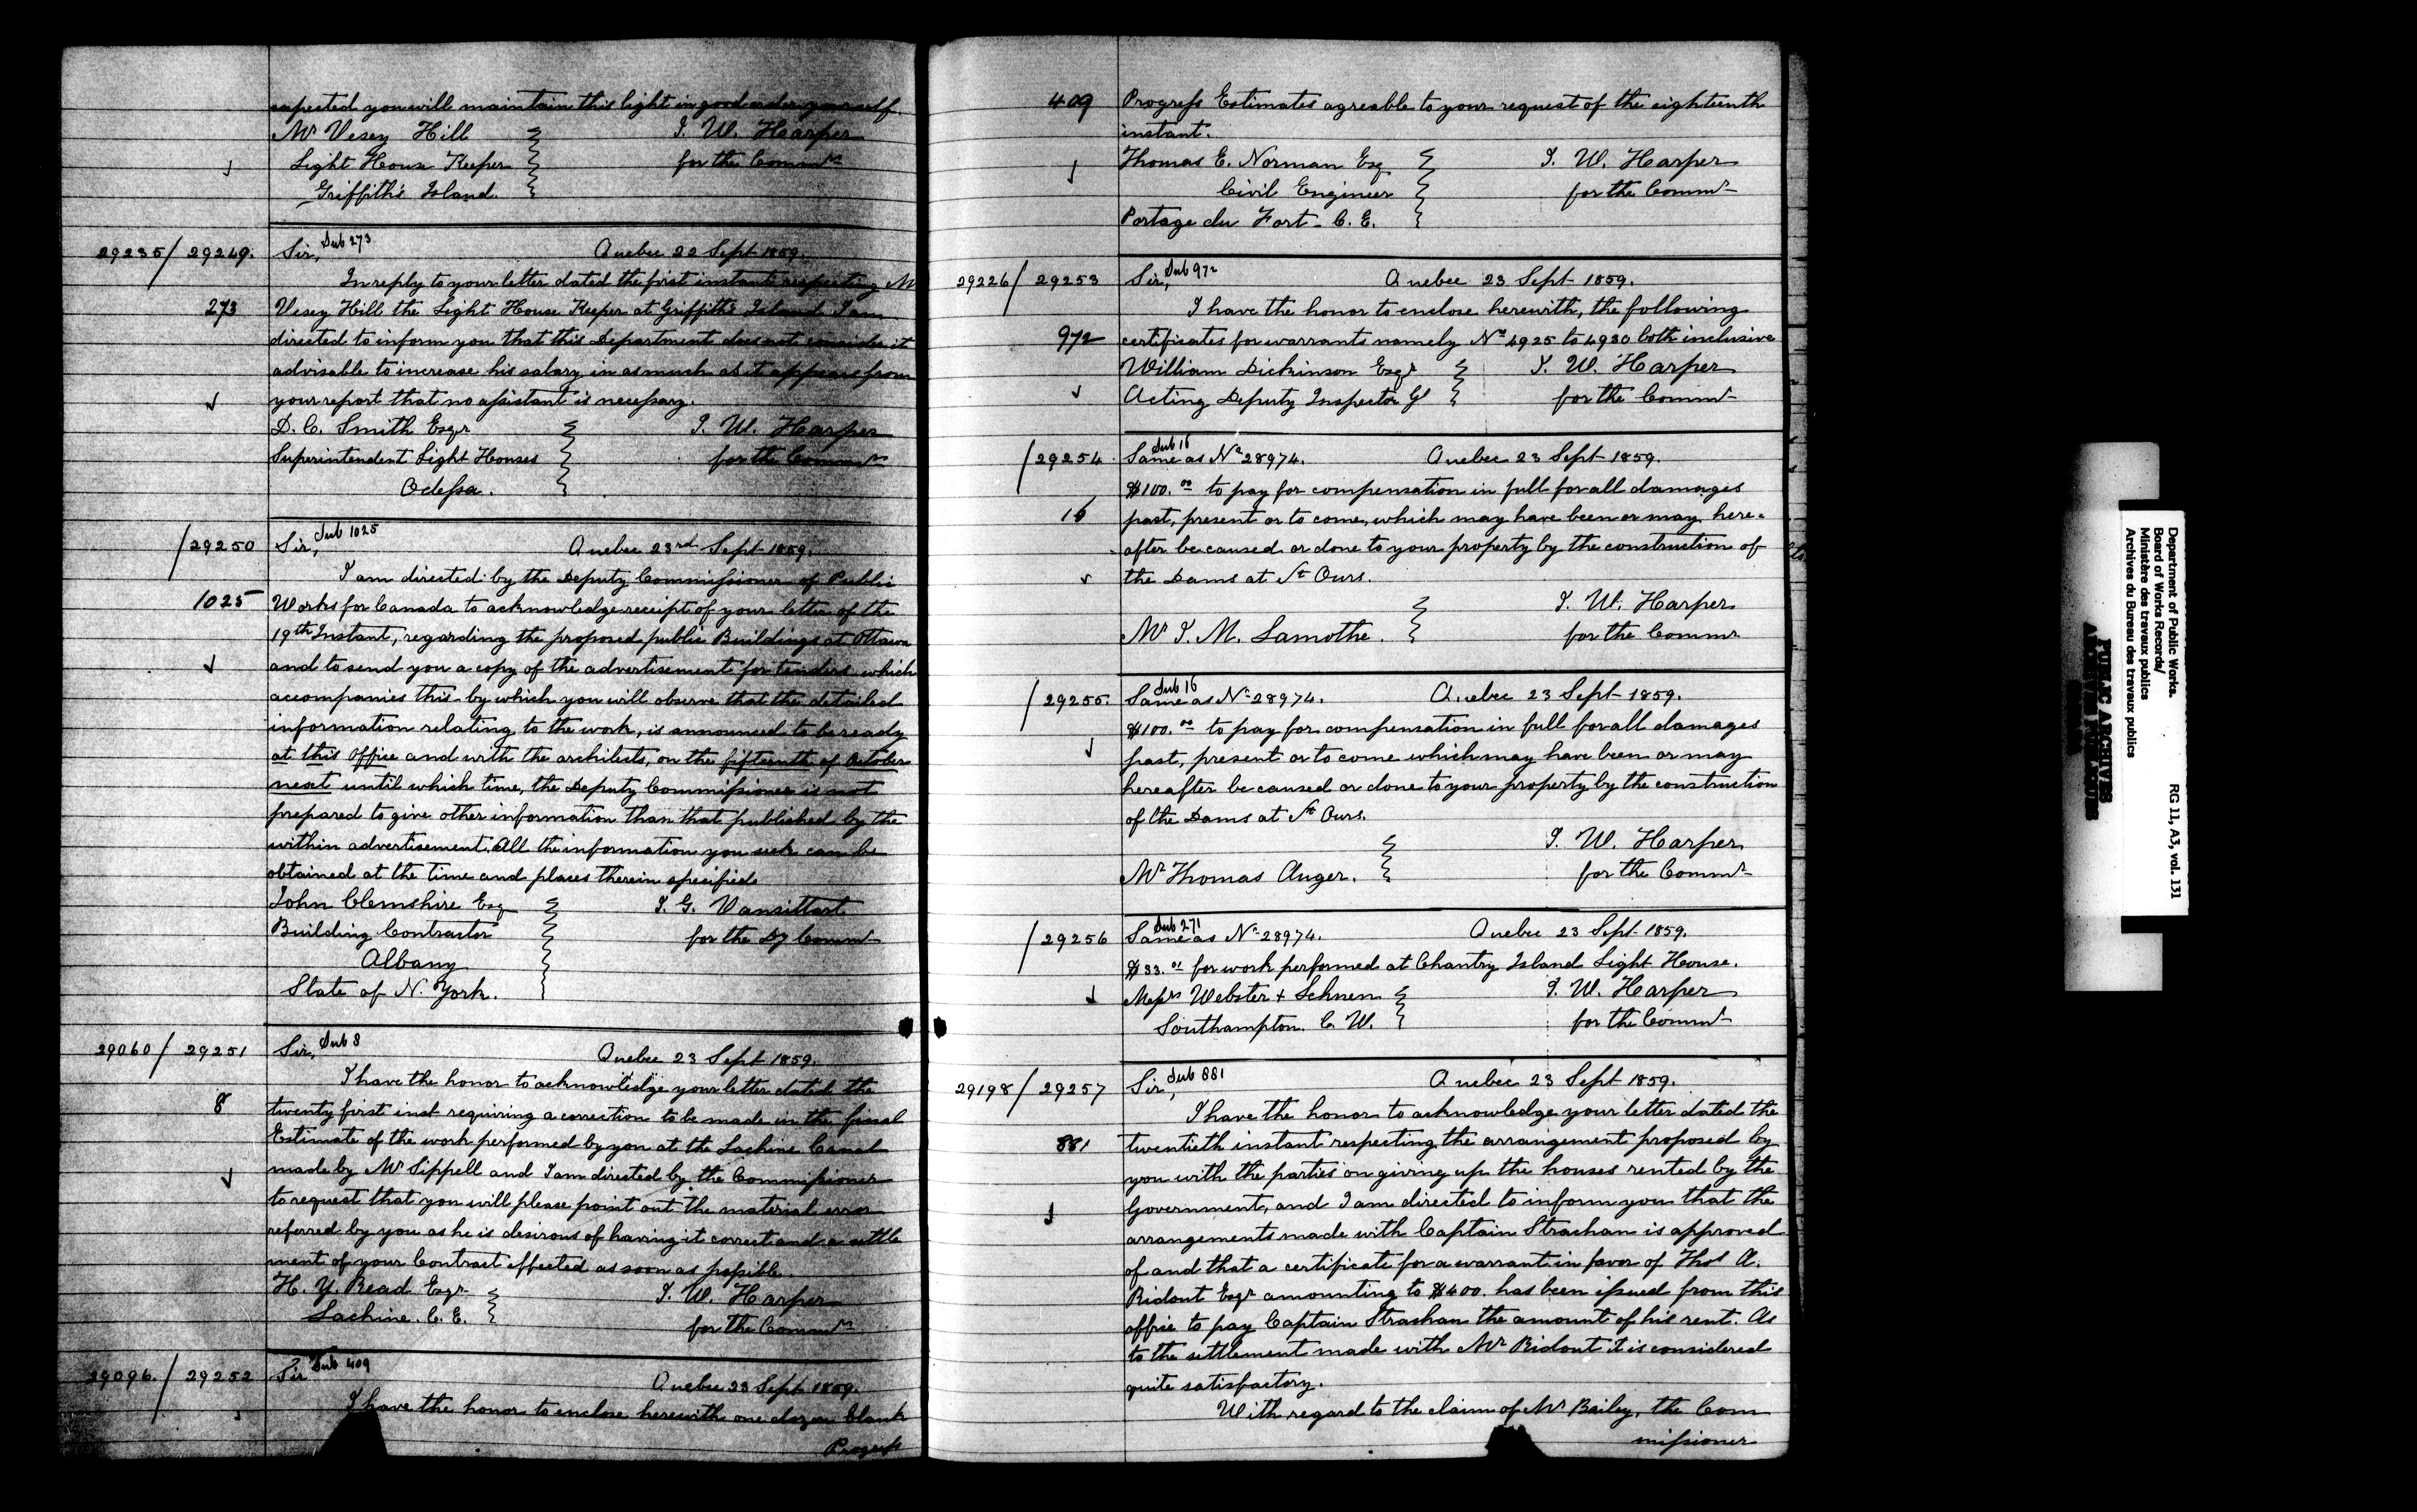 expected you will maintain this light in good order yourself.
Mr Vesey Hill
J. W. Harper
Light House Keeper
for the Commrs
Griffith's Island.
29235/29249.
Sir, Sub 273
Quebec 22 Sept 1859.
In reply to your letter dated the first instant respecting Mr
273
Vesey Hill the Light House Keeper at Griffith's Island I am
directed to inform you that this Department does not consider it
advisable to increase his salary in as much as it appears from
your report that no assistant is necessary.
D. C. Smith Esqr
J. W. Harper
Superintendent Light Houses
for the Commrs
Odessa.
/29250
Sir, Sub 1025
Quebec 23rd Sept 1859.
I am directed by the Deputy Commissioner of Public
1025
Works for Canada to acknowledge receipt of your letter of the
19th Instant, regarding the proposed public Buildings at Ottawa
and to send you a copy of the advertisement for tenders which
accompanies this by which you will observe that the detailed
information relating to the work, is announced to be ready
at this Office and with the architects, on the fifteenth of October
next until which time, the Deputy Commissioner is not
prepared to give other information than that published by the
within advertisement. All the information you seek can be
obtained at the time and places therein specified
John Clemshire Esq
J. G. Vansittart
Building Contractor
for the Dy Commr
Albany
State of N. York.
29060/29251
Sir, Sub 8
Quebec 23 Sept 1859.
I have the honor to acknowledge your letter dated the
8
twenty first inst requiring a correction to be made in the final
Estimate of the work performed by you at the Lachine Canal
made by Mr Sippell and I am directed by the Commissioner
to request that you will please point out the material error
referred by you as he is desirous of having it correct and a settle
ment of your Contract effected as soon as possible.
H. Y. Read Esqr
J. W. Harper
Lachine. C. E.
for the Commrs
29096/29252
Sir Sub 409
Quebec 23 Sept 1859.
I have the honor to enclose herewith one dozen blank
Progress
409
Progress Estimates agreable to your request of the eighteenth
instant.
Thomas E. Norman Esq
J. W. Harper
Civil Engineer
for the Commr
Portage du Fort - C. E.
29226/29253
Sir, Sub 972
Quebec 23 Sept 1859.
I have the honor to enclose herewith, the following
972
certificates for warrants namely Nos 4925 to 4930 both inclusive
William Dickinson Esqr
J. W. Harper
Acting Deputy Inspector Gl
for the Commr
/29254
Sub 16
Same as No 28974.
Quebec 23 Sept 1859.
$100.00 to pay for compensation in full for all damages
16
past, present or to come, which may have been or may here=
after be caused or done to your property by the construction of
the Dams at St Ours.
J. W. Harper
Mr J. M. Lamothe.
for the Commr
/29255.
Sub 16
Same as No 28974.
Quebec 23 Sept 1859.
$100.00 to pay for compensation in full for all damages
past, present or to come which may have been or may
hereafter be caused or done to your property by the construction
of the Dams at St Ours.
J. W. Harper
Mr Thomas Auger.
for the Commr
/29256
Sub 271
Same as No 28974.
Quebec 23 Sept 1859.
for work performed at Chantry Island Light House.
Messrs Webster +
J. W. Harper
Southampton. C. W.
for the Commr
29198/29257
Sir, Sub 881
Quebec 23 Sept 1859.
I have the honor to acknowledge your letter dated the
881
twentieth instant respecting the arrangement proposed by
you with the parties on giving up the houses rented by the
Government, and I am directed to inform you that the
arrangements made with Captain Strachan is approved
of and that a certificate for a warrant in favor of Thos A.
Ridout Esqr amounting to $400. has been issued from this
office to pay Captain Strachan the amount of his rent. As
to the settlement made with Mr Ridout it is considered
quite satisfactory.
With regard to the claim of Mr Bailey, the Com
missioner
Department of Public Works.
RG 11, A3, vol. 131
Board of Works Records/
Ministère des travaux publics
Archives du Bureau des travaux publics
PUBLIC ARCHIVES